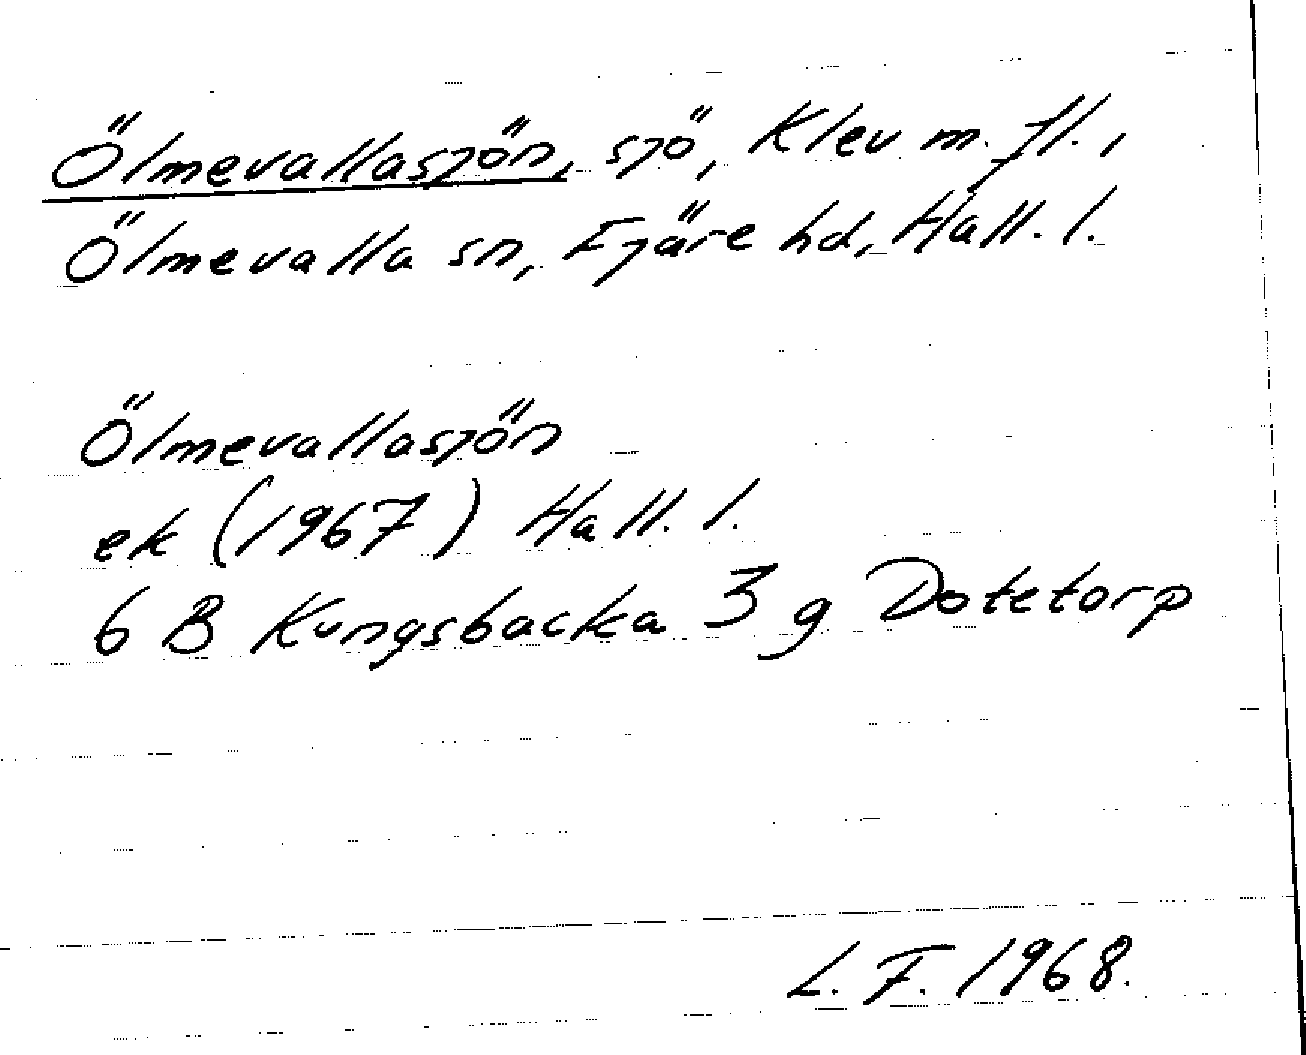 Ölmevallasjön, sjö, Klev m. fl.,
Ölmevalla sn, Fjäre hd, Hall. l.
Ölmevallasjön
ek (1967) Hall. l.
6 B Kungsbacka 3 g Dotetorp
L. F. 1968.